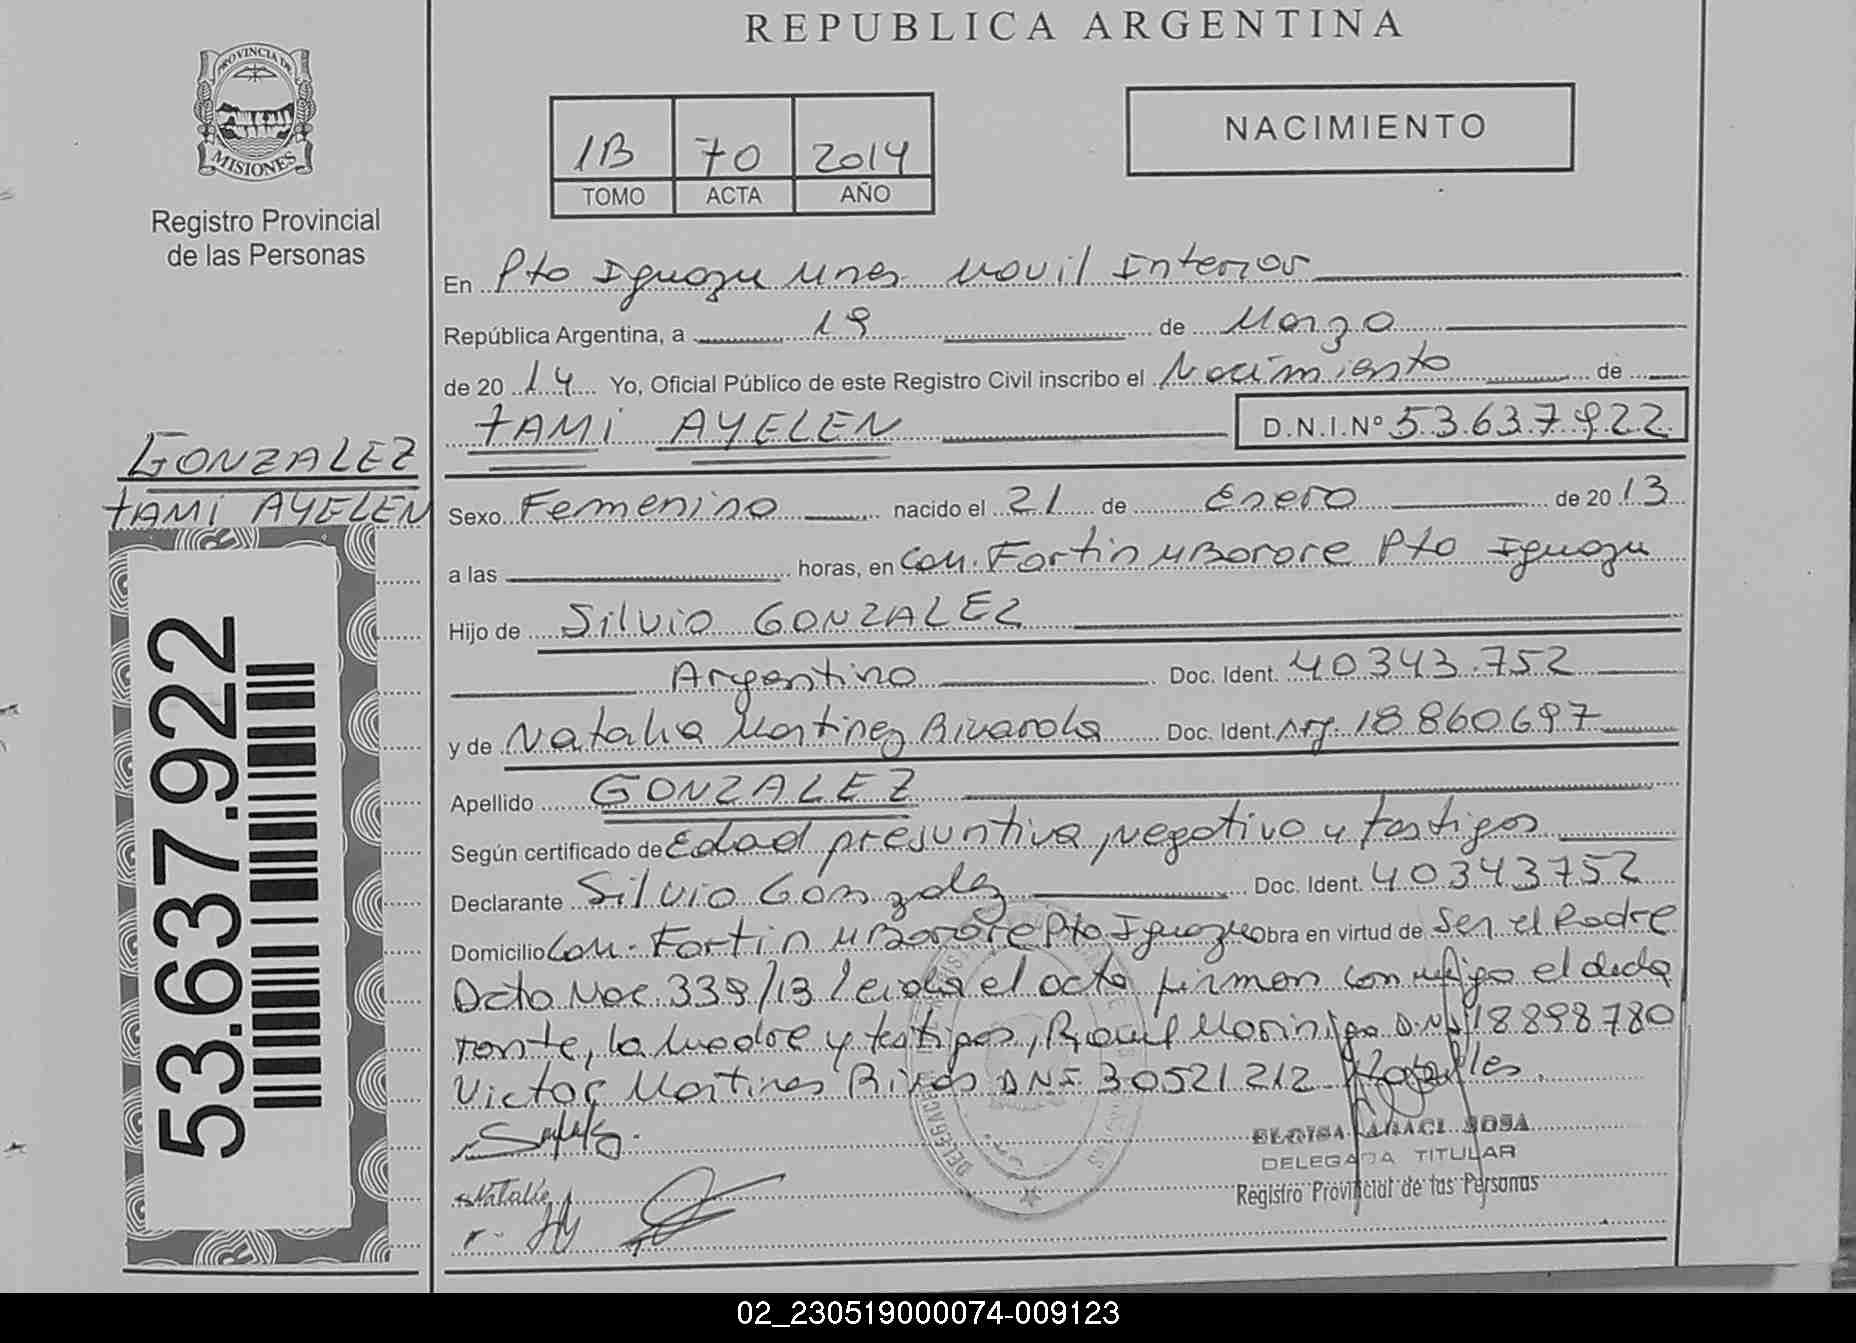 REPUBLICA ARGENTINA
PROVINCIA DE
MISIONES
Registro Provincial
de las Personas
1B 70 2014
TOMO ACTA AÑO
NACIMIENTO
En Pto Iguazu Unes Movil Interior
República Argentina, a 19 de Marzo
de 2014 Yo, Oficial Público de este Registro Civil inscribo el Nacimiento de
TAMI AYELEN D.N.I.Nº 53.637.922
GONZALEZ
TAMI AYELEN
53.637.922
Sexo Femenino nacido el 21 de Enero de 2013
a las horas, en Com. Fortin MBorore Pto Iguazu
Hijo de Silvio GONZALEZ
Argentino Doc. Ident. 40343.752
y de Natalia Martinez Rivarola Doc. Ident. Arg. 18860697
Apellido GONZALEZ
Según certificado de Edad presuntiva, negativo y testigos
Declarante Silvio Gonzalez Doc. Ident. 40343752
Domicilio Com. Fortin MBorore Pto Iguazu Obra en virtud de Ser el Padre
Dcto Nac. 339/13 leida el acta firman conmigo el decla
rante, la madre y testigos, Raul Morinigo D.N.I 18898780
Victor Martines Rivas DNI 30521212
DELEGACION
Natalia
ELOISA ARACI SOSA
DELEGADA TITULAR
Registro Provincial de las Personas
02_230519000074-009123